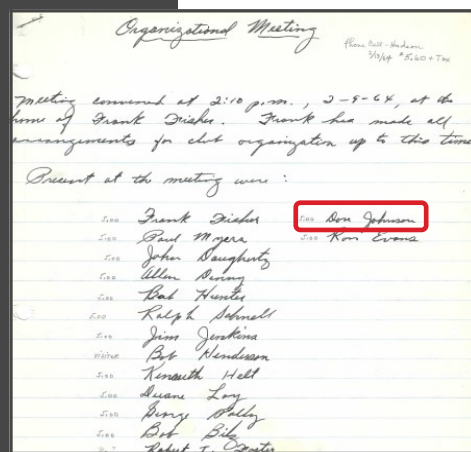 Organizational Meeting
Phone Call - Hudson
2/13/64 $5.60 + Tax
Meeting convened at 2:10 p.m., 2-9-64, at the
home of Frank Fisher. Frank has made all
arrangements for club organization up to this time
Present at the meeting were:
5.00 Frank Fisher 5.00 Don Johnson
5.00 Paul Myers 5.00 Ron Evans
5.00 John Daugherty
5.00 Allen Denny
5.00 Bob Hunter
5.00 Ralph Schnell
5.00 Jim Jenkins
visitor Bob Henderson
5.00 Kenneth Helt
5.00 Duane Loy
5.00 George
5.00 Bob Bilz
Robert T. Foster